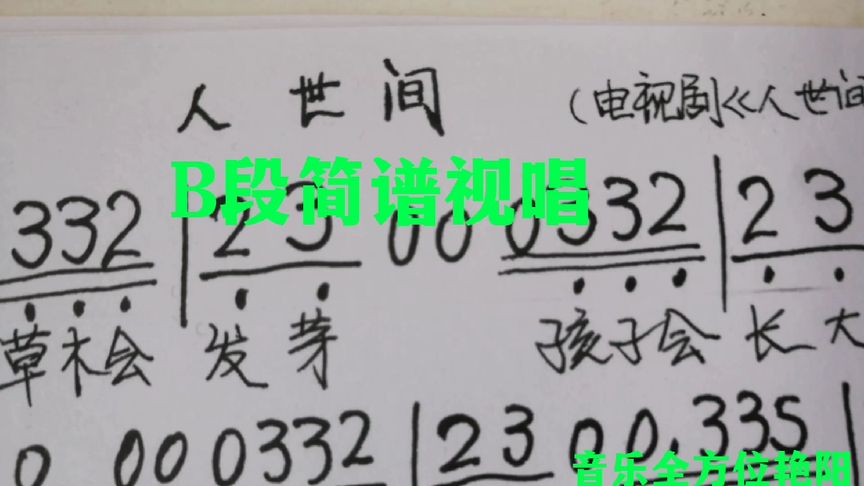 人世间
(电视剧《人世间
B段简谱视唱
332 | 23 00 0332 | 23
草木会 发芽 孩子会 长大
0 00 0332 | 23 00.335 |
音乐全方位艳阳